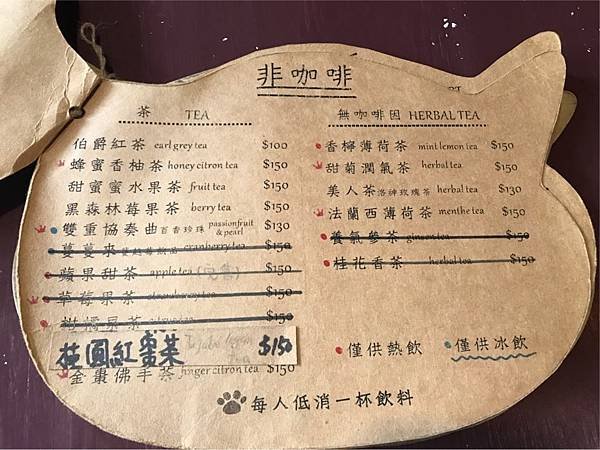 非咖啡
茶 TEA
伯爵紅茶 earl grey tea $100
蜂蜜香柚茶 honey citron tea $150
甜蜜蜜水果茶 fruit tea $150
黑森林莓果茶 berry tea $150
雙重協奏曲 百香珍珠 passionfruit & pearl $130
蔓蔓來 cranberry tea $150
蘋果甜茶 apple tea $150
草莓果茶 strawberry tea $150
柑橘
桂圓紅棗茶 $150
金棗佛手茶 finger citron tea $150
無咖啡因 HERBAL TEA
香檸薄荷茶 mint lemon tea $150
甜菊潤氣茶 herbal tea $150
美人茶 洛神玫瑰茶 herbal tea $130
法蘭西薄荷茶 menthe tea $150
養氣參茶 ginseng tea $150
桂花香茶 herbal tea $150
僅供熱飲 僅供冰飲
每人低消一杯飲料